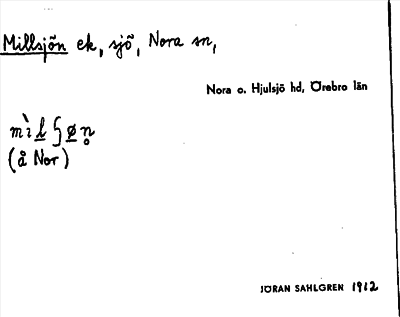 Millsjön ek, sjö, Nora sn,
Nora o. Hjulsjö hd, Örebro län
(å Nor)
JÖRAN SAHLGREN 1912